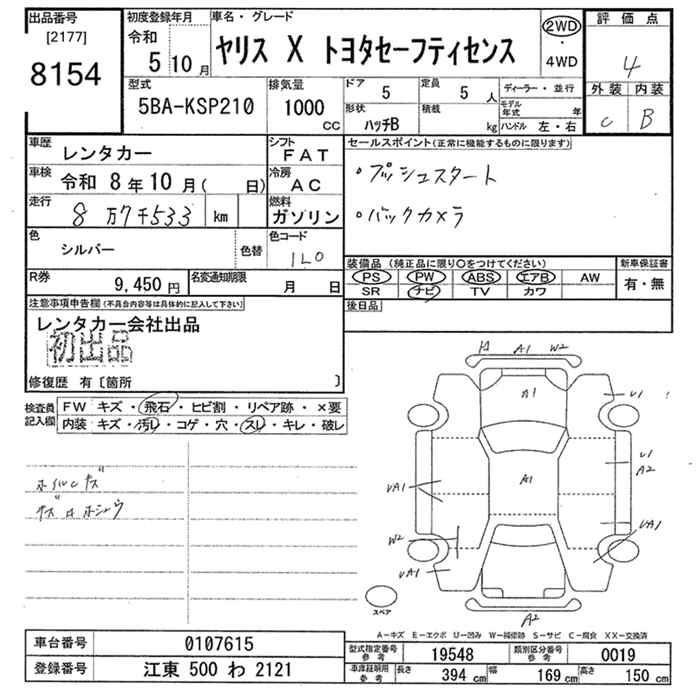 出品番号
[2177]
8154
初度登録年月
令和
5 10 月
車名・グレード
ヤリス X トヨタセーフティセンス
2WD
・
4WD
評価点
4
外装 内装
C B
型式
5BA-KSP210
排気量
1000
CC
ドア 5
定員 5 人
形状
ハッチB
積載
kg
ディーラー・並行
モデル年式 年
ハンドル 左・右
車歴
レンタカー
シフト
FAT
車検 令和 8 年 10 月( 日)
冷房
AC
走行 8 万7千533 km
燃料
ガソリン
色
シルバー
色替
色コード
1L0
R券
9,450 円
名変通知期限
月 日
セールスポイント(正常に機能するものに限ります)
・プッシュスタート
・バックカメラ
装備品(純正品に限り○をつけてください)
PS PW ABS エアB AW
SR ナビ TV カワ
新車保証書
有・無
後日品
注意事項申告欄(不具合内容等は具体的に記入して下さい)
レンタカー会社出品
初出品
修復歴 有〔箇所 〕
検査員
記入欄
FW キズ・飛石・ヒビ割・リペア跡・×要
内装 キズ・汚レ・コゲ・穴・スレ・キレ・破レ
ホイルキズ
A1 W2
A1
U1
A1
U1
A2
UA1
UA1
W2
UA1
A2
スペア
A−キズ E−エクボ U−凹み W−補修跡 S−サビ C−腐食 XX−交換済
車台番号 0107615
登録番号 江東 500 わ 2121
型式指定番号
参考
19548
類別区分番号
参考
0019
車庫証明用
参考
長さ 394 cm
幅 169 cm
高さ 150 cm